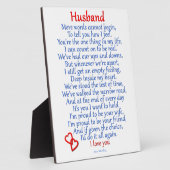 Husband
Mere words cannot begin,
To tell you how I feel.
You're the one thing in my life,
I can count on to be real.
We've had our ups and downs,
But whenever we're apart,
I still get an empty feeling,
Deep inside my heart.
We've stood the test of time,
We've walked the narrow road,
And at the end of every day,
It's you I want to hold.
I'm proud to be your wife,
I'm proud to be your friend,
And if given the chance,
I'd do it all again.
I love you